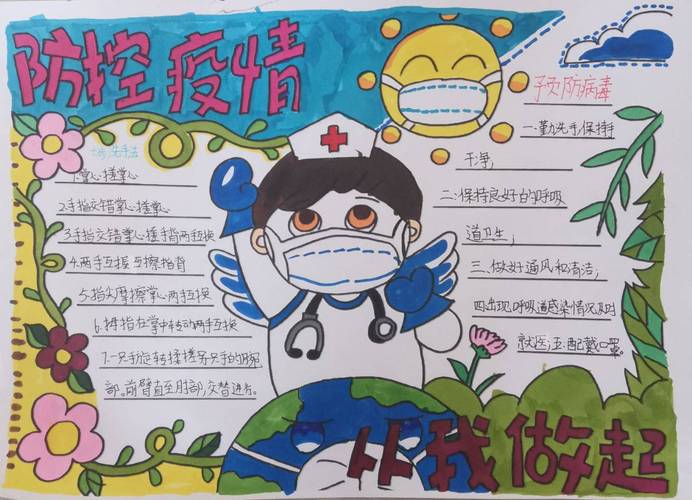 防控疫情
七步洗手法
1.掌心搓掌心
2.手指交错掌心搓掌心
3.手指交错掌心搓手背两手互换
4.两手互握互擦指背
5.指尖摩擦掌心两手互换
6.拇指在掌中转动两手互换
7.一只手旋转揉搓另只手的腕
部。前臂直至肘部,交替进行。
预防病毒
一.勤洗手,保持手
干净;
二.保持良好的呼吸
道卫生;
三.做好通风和清洁;
四.出现呼吸道感染情况及时
就医;五.配戴口罩。
从我做起